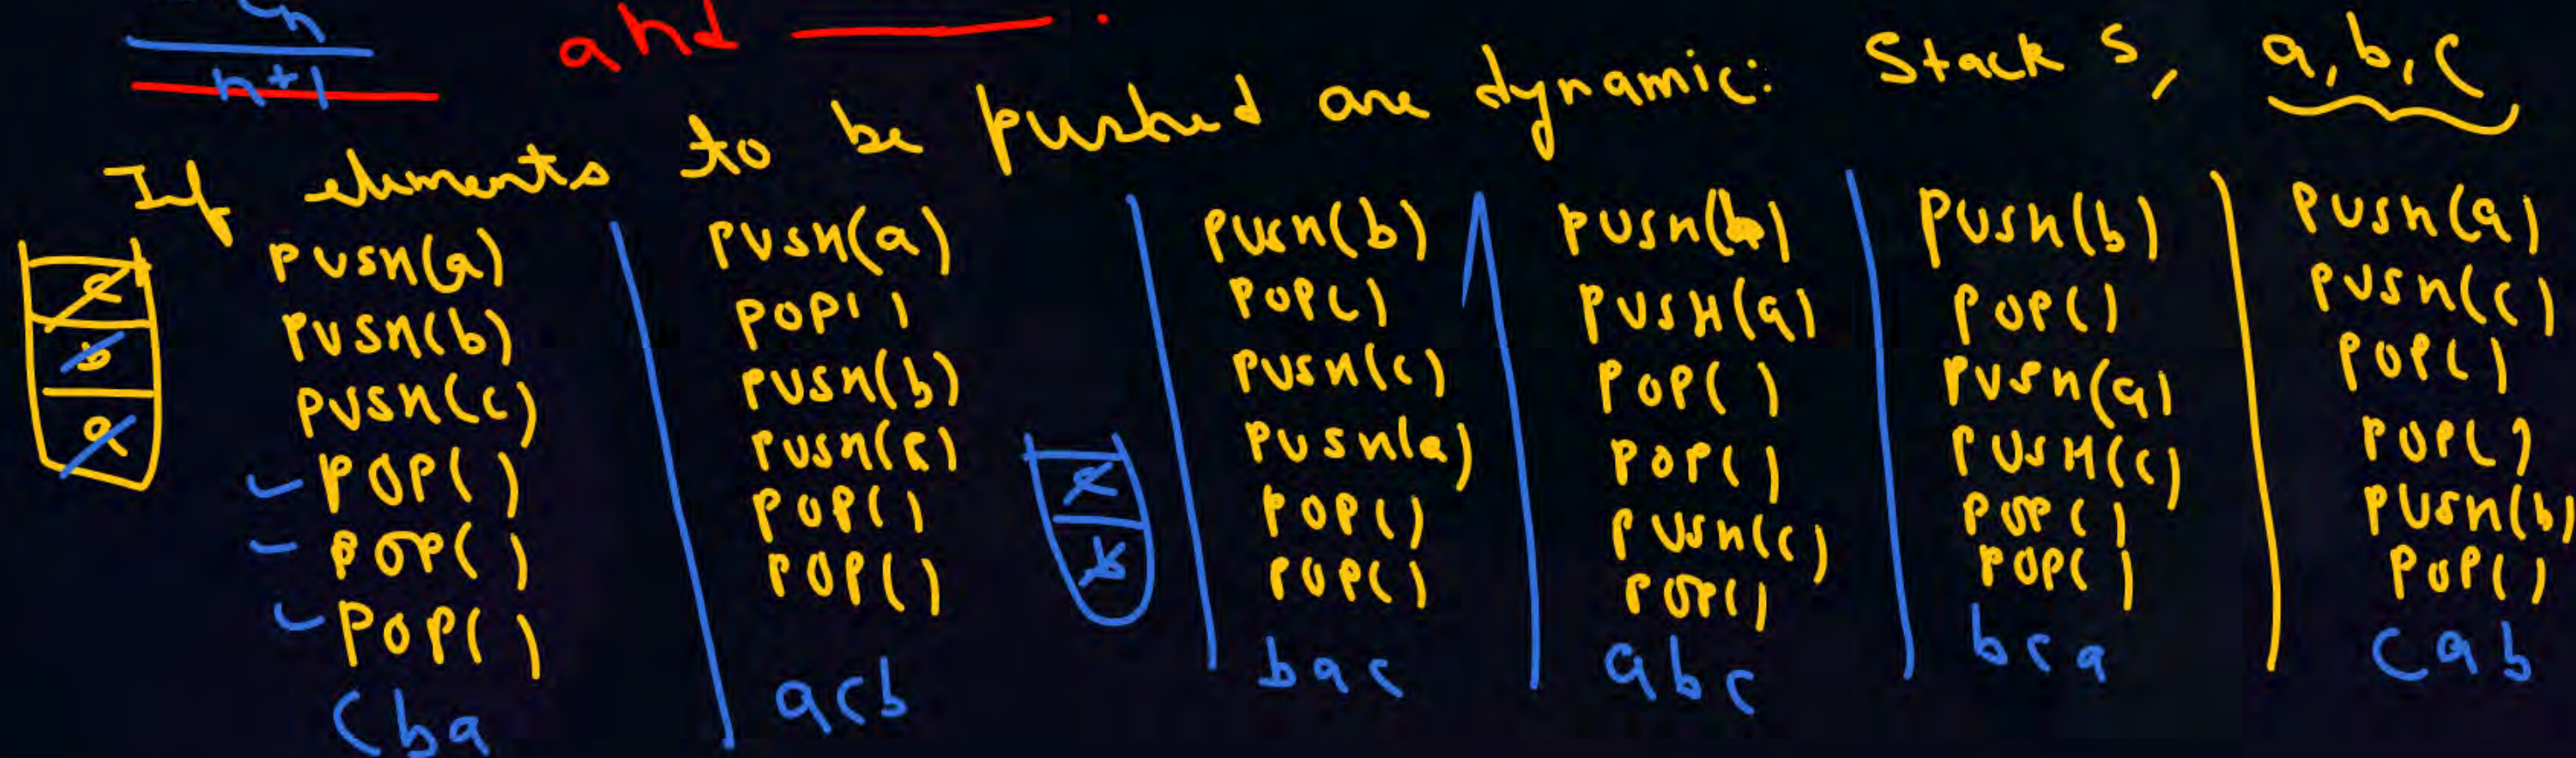 n+1 and
If elements to be pushed are dynamic: Stack S, a, b, c
PUSH(a)
PUSH(b)
PUSH(c)
POP()
POP()
POP()
cba
PUSH(a)
POP()
PUSH(b)
PUSH(c)
POP()
POP()
acb
PUSH(b)
POP()
PUSH(c)
PUSH(a)
POP()
POP()
bac
PUSH(b)
PUSH(a)
POP()
POP()
PUSH(c)
POP()
abc
PUSH(b)
POP()
PUSH(a)
PUSH(c)
POP()
POP()
bca
PUSH(a)
PUSH(c)
POP()
POP()
PUSH(b)
POP()
cab